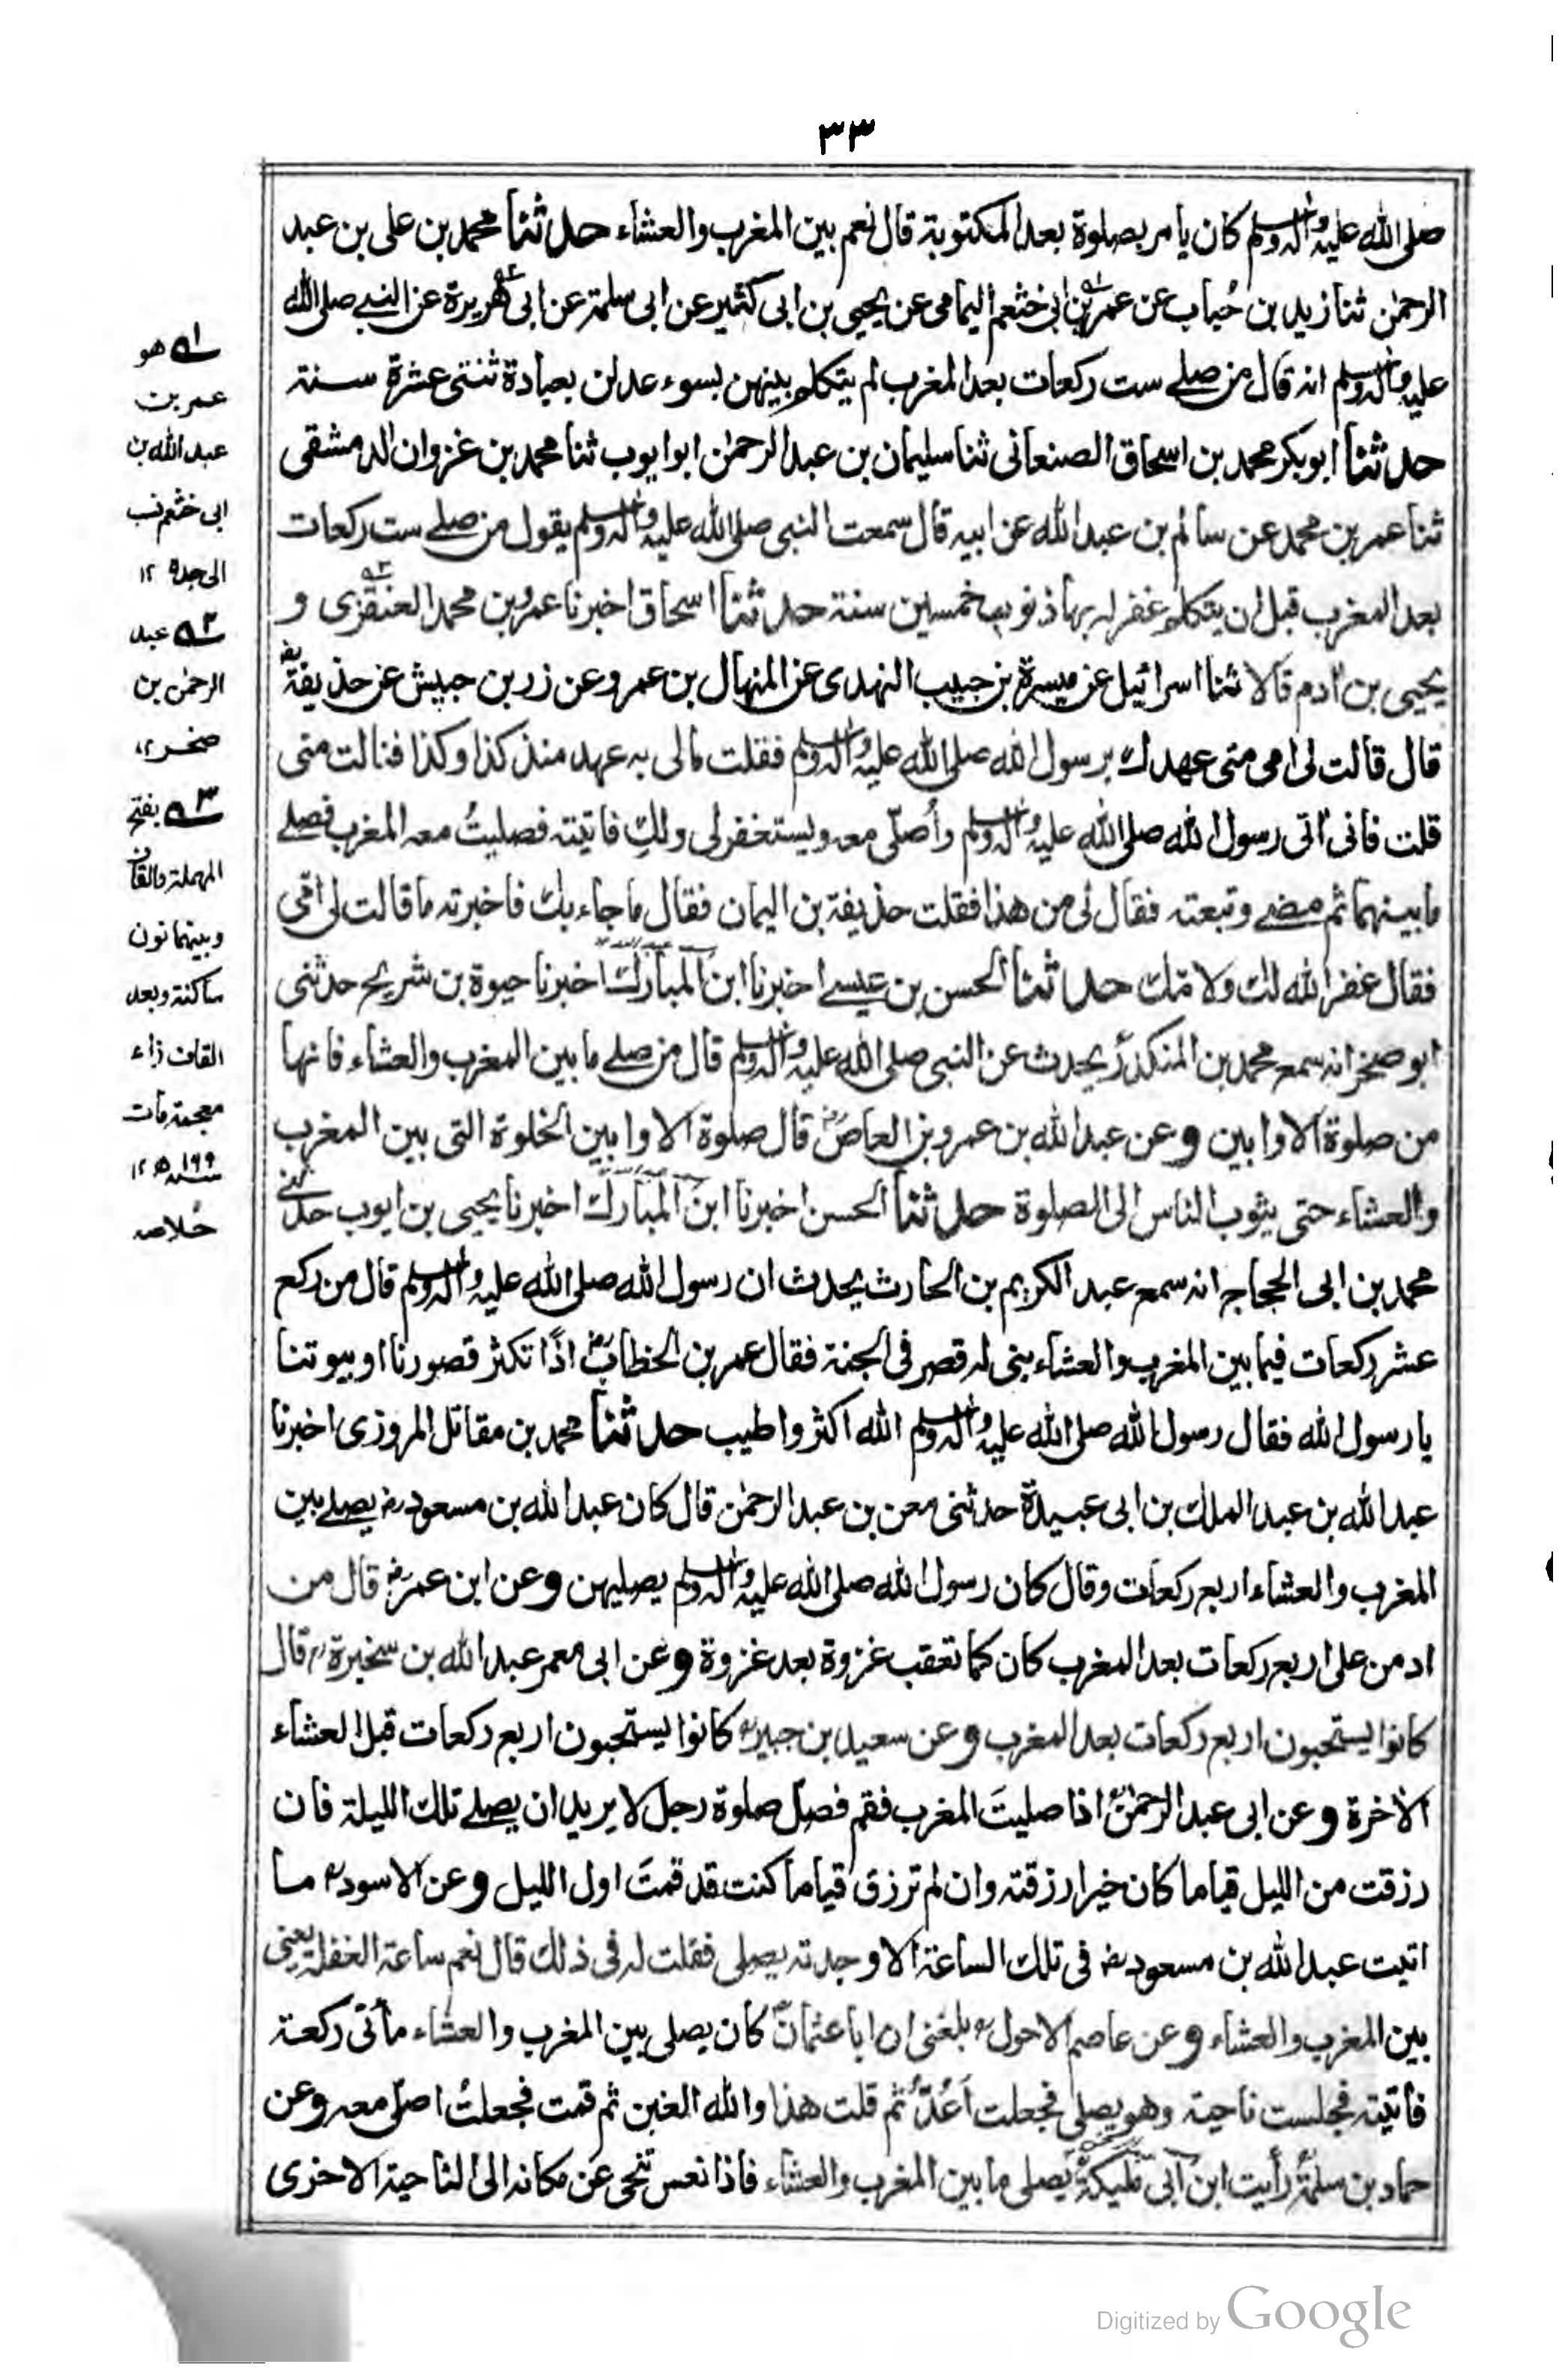 ٣٣
صلى الله عليه واله وسلم كان يأمر بصلوة بعد المكتوبة قال نعم بين المغرب والعشاء حدثنا محمد بن على بن عبد
الرحمن ثنا زيد بن حُباب عن عمر بن ابى خثعم اليمامى عن يحيى بن ابى كثير عن ابى سلمة عن ابى هريرة عن النبى صلى الله
عليه واله وسلم انه قال من صلے ست ركعات بعد المغرب لم يتكلم بينهن بسوء عدلن بعبادة ثنتى عشرة سنة
حدثنا ابو بكر محمد بن اسحاق الصنعانى ثنا سليمان بن عبد الرحمن ابو ايوب ثنا محمد بن غزوان الدمشقى
ثنا عمر بن محمد عن سالم بن عبد الله عن ابيه قال سمعت النبى صلى الله عليه واله وسلم يقول من صلے ست ركعات
بعد المغرب قبل ان يتكلم غفر له بها ذنوب خمسين سنة حدثنا اسحاق اخبرنا عمرو بن محمد العنقزى و
يحيى بن ادم قالا ثنا اسرائيل عن ميسرة بن حبيب النهدى عن المنهال بن عمرو عن زر بن حبيش عن حذيفة رض
قال قالت لى امى متى عهدك برسول الله صلى الله عليه واله وسلم فقلت مالى به عهد منذ كذا وكذا فنالت منى
قلت فانى اتى رسول الله صلى الله عليه واله وسلم وأُصلّى معه ويستغفر لى ولكِ فاتيته فصليتُ معه المغرب فصلے
ما بينهما ثم مضے وتبعته فقال لى من هذا فقلت حذيفة بن اليمان فقال ما جاء بك فاخبرته ما قالت لى امّى
فقال غفر الله لك ولامّك حدثنا الحسن بن عيسے اخبرنا ابن المبارك اخبرنا حيوة بن شريح حدثنى
ابو صخر انه سمع محمد بن المنكدر يحدث عن النبى صلى الله عليه واله وسلم قال من صلے ما بين المغرب والعشاء فانها
من صلوة الاوابين وعن عبد الله بن عمرو بن العاص رض قال صلوة الاوابين الخلوة التى بين المغرب
والعشاء حتى يثوب الناس الى الصلوة حدثنا الحسن اخبرنا ابن المبارك اخبرنا يحيى بن ايوب حدثنے
محمد بن ابى الحجاج انه سمع عبد الكريم بن الحارث يحدث ان رسول الله صلى الله عليه واله وسلم قال من ركع
عشر ركعات فيما بين المغرب والعشاء بنى له قصر فى الجنة فقال عمر بن الخطاب رض اذًا تكثر قصورنا او بيوتنا
يا رسول الله فقال رسول الله صلى الله عليه واله وسلم الله اكثر واطيب حدثنا محمد بن مقاتل المروزى اخبرنا
عبد الله بن عبد الملك بن ابى عبيدة حدثنى معن بن عبد الرحمن قال كان عبد الله بن مسعود رض يصلے بين
المغرب والعشاء اربع ركعات وقال كان رسول الله صلى الله عليه واله وسلم يصليهن وعن ابن عمر رض قال من
ادمن على اربع ركعات بعد المغرب كان كما تعقب غزوة بعد غزوة وعن ابى معمر عبد الله بن سخبرة رح قال
كانوا يستحبون اربع ركعات بعد المغرب وعن سعيد بن جبير رح كانوا يستحبون اربع ركعات قبل العشاء
الاخرة وعن ابى عبد الرحمن رح اذا صليتَ المغرب فقم فصل صلوة رجل لا يريد ان يصلے تلك الليلة فان
رزقت من الليل قياما كان خيرا رزقته وان لم ترزق قياما كنت قد قمتَ اول الليل وعن الاسود رح ما
اتيت عبد الله بن مسعود رض فى تلك الساعة الا وجدته يصلى فقلت له فى ذلك قال نعم ساعة الغفلة يعنى
بين المغرب والعشاء وعن عاصم الاحول رح بلغنى ان ابا عثمان رح كان يصلى بين المغرب والعشاء مأتى ركعة
فأتيته فجلست ناحية وهو يصلى فجعلت اَعُدّ ثم قلت هذا والله الغبن ثم قمت فجعلتُ اصلّى معه وعن
حماد بن سلمة رأيت ابن ابى مليكة يصلى ما بين المغرب والعشاء فاذا نعس تنحى عن مكانه الى الناحية الاخرى
ـه١ هو
عمر بن
عبد الله بن
ابى خثعم نسب
الى جده ١٢
ـه٢ عبد
الرحمن بن
صخر ١٢
ـه٣ بفتح
المهملة والقاف
وبينهما نون
ساكنة وبعد
القاف زاء
معجمة مات
سنه ١٩٩ ه ١٢
خلاصه
Digitized by Google